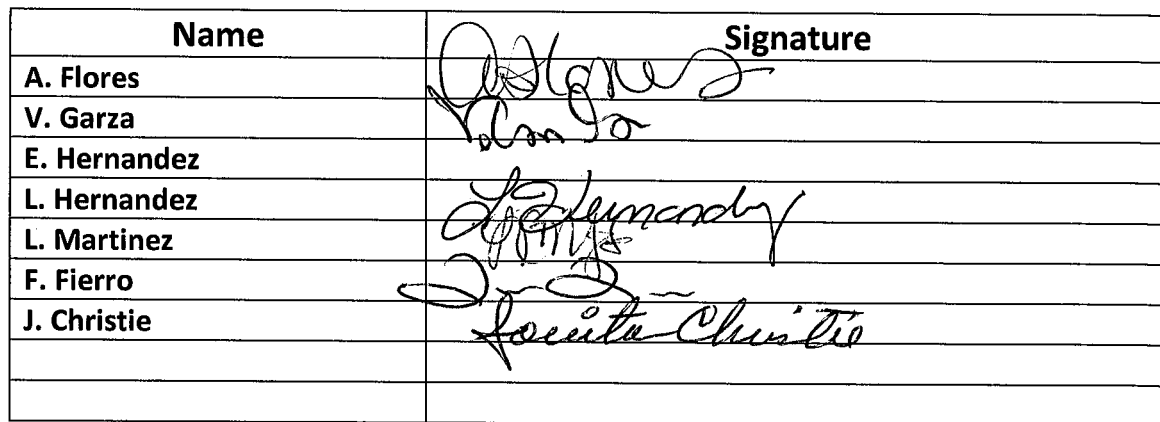 Name Signature
A. Flores A. Flores
V. Garza
E. Hernandez
L. Hernandez L. Hernandez
L. Martinez
F. Fierro
J. Christie Christie